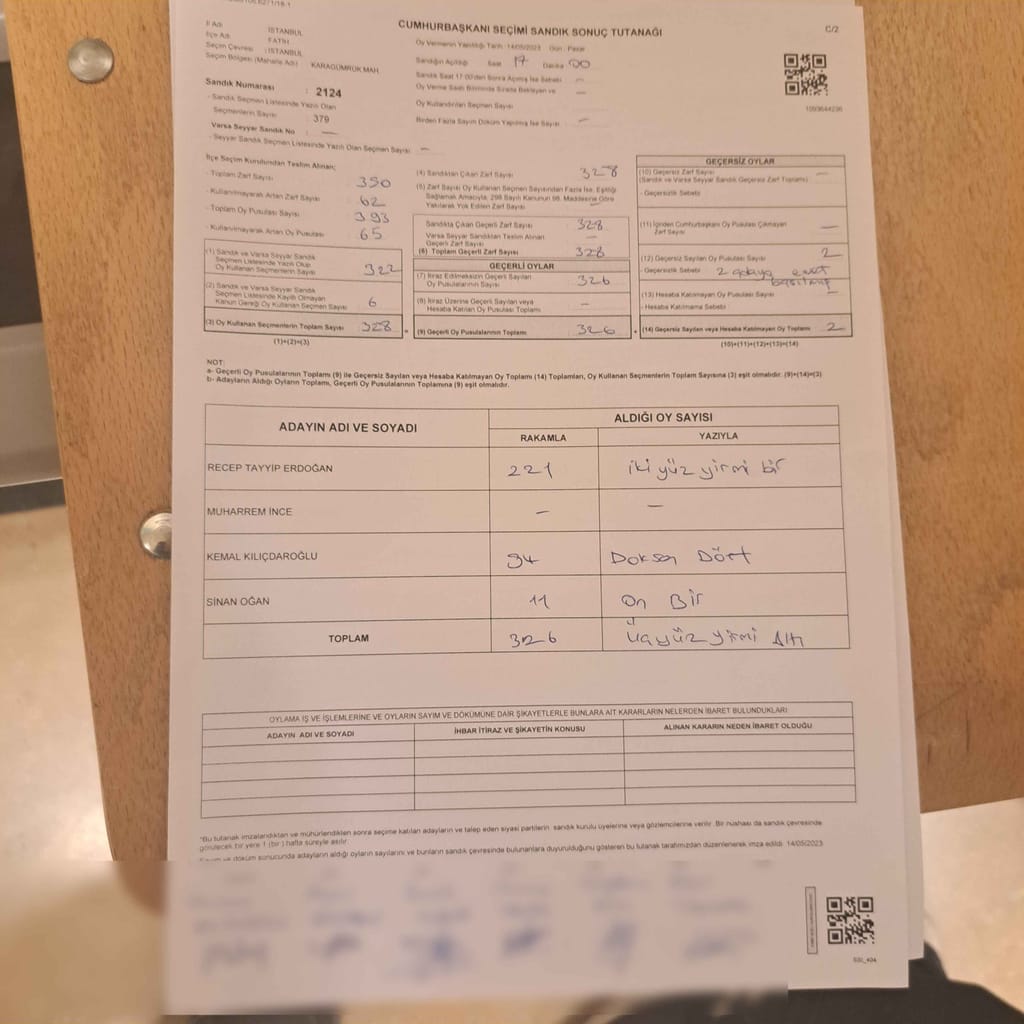 CUMHURBAŞKANI SEÇİMİ SANDIK SONUÇ TUTANAĞI
C/2
İl Adı İSTANBUL
İlçe Adı FATİH
Seçim Çevresi : İSTANBUL
Seçim Bölgesi (Mahalle Adı) KARAGÜMRÜK MAH.
Sandık Numarası : 2124
- Sandık Seçmen Listesinde Yazılı Olan
Seçmenlerin Sayısı : 379
Varsa Seyyar Sandık No : —
- Seyyar Sandık Seçmen Listesinde Yazılı Olan Seçmen Sayısı —
Oy Vermenin Yapıldığı Tarih : 14/05/2023 Gün : Pazar
Sandığın Açıldığı Saat 17 Dakika 00
Sandık Saat 17:00'den Sonra Açılmış İse Sebebi —
Oy Verme Saati Bitiminde Sırada Bekleyen ve —
Oy Kullandırılan Seçmen Sayısı
Birden Fazla Sayım Döküm Yapılmış İse Sayısı —
İlçe Seçim Kurulundan Teslim Alınan;
- Toplam Zarf Sayısı 350
- Kullanılmayarak Artan Zarf Sayısı 62
- Toplam Oy Pusulası Sayısı 393
- Kullanılmayarak Artan Oy Pusulası 65
(1) Sandık ve Varsa Seyyar Sandık
Seçmen Listesinde Yazılı Olup
Oy Kullanan Seçmenlerin Sayısı 322
(2) Sandık ve Varsa Seyyar Sandık
Seçmen Listesinde Kayıtlı Olmayan
Kanun Gereği Oy Kullanan Seçmen Sayısı 6
(3) Oy Kullanan Seçmenlerin Toplam Sayısı 328
(1)+(2)=(3)
(4) Sandıktan Çıkan Zarf Sayısı 328
(5) Zarf Sayısı Oy Kullanan Seçmen Sayısından Fazla İse, Eşitliği
Sağlamak Amacıyla, 298 Sayılı Kanunun 98. Maddesine Göre
Yakılarak Yok Edilen Zarf Sayısı —
Sandıkta Çıkan Geçerli Zarf Sayısı 328
Varsa Seyyar Sandıktan Teslim Alınan
Geçerli Zarf Sayısı —
(6) Toplam Geçerli Zarf Sayısı 328
GEÇERLİ OYLAR
(7) İtiraz Edilmeksizin Geçerli Sayılan
Oy Pusulalarının Sayısı 326
(8) İtiraz Üzerine Geçerli Sayılan veya
Hesaba Katılan Oy Pusulası Toplamı —
(9) Geçerli Oy Pusulalarının Toplamı 326
GEÇERSİZ OYLAR
(10) Geçersiz Zarf Sayısı —
(Sandık ve Varsa Seyyar Sandık Geçersiz Zarf Toplamı)
- Geçersizlik Sebebi
(11) İçinden Cumhurbaşkanı Oy Pusulası Çıkmayan
Zarf Sayısı —
(12) Geçersiz Sayılan Oy Pusulası Sayısı 2
- Geçersizlik Sebebi 2 adaya evet
basılmış
(13) Hesaba Katılmayan Oy Pusulası Sayısı —
- Hesaba Katılmama Sebebi
(14) Geçersiz Sayılan veya Hesaba Katılmayan Oy Toplamı 2
(10)+(11)+(12)+(13)=(14)
NOT:
a- Geçerli Oy Pusulalarının Toplamı (9) ile Geçersiz Sayılan veya Hesaba Katılmayan Oy Toplamı (14) Toplamları, Oy Kullanan Seçmenlerin Toplam Sayısına (3) eşit olmalıdır. (9)+(14)=(3)
b- Adayların Aldığı Oyların Toplamı, Geçerli Oy Pusulalarının Toplamına (9) eşit olmalıdır.
ADAYIN ADI VE SOYADI ALDIĞI OY SAYISI
RAKAMLA YAZIYLA
RECEP TAYYİP ERDOĞAN 221 iki yüz yirmi bir
MUHARREM İNCE — —
KEMAL KILIÇDAROĞLU 94 Doksan Dört
SİNAN OĞAN 11 On Bir
TOPLAM 326 üçyüz yirmi Altı
OYLAMA İŞ VE İŞLEMLERİNE VE OYLARIN SAYIM VE DÖKÜMÜNE DAİR ŞİKAYETLERLE BUNLARA AİT KARARLARIN NELERDEN İBARET BULUNDUKLARI
ADAYIN ADI VE SOYADI İHBAR İTİRAZ VE ŞİKAYETİN KONUSU ALINAN KARARIN NEDEN İBARET OLDUĞU
*Bu tutanak imzalandıktan ve mühürlendikten sonra seçime katılan adayların ve talep eden siyasi partilerin sandık kurulu üyelerine veya gözlemcilerine verilir. Bir nüshası da sandık çevresinde
görülecek bir yere 1 (bir) hafta süreyle asılır.
Sayım ve döküm sonucunda adayların aldığı oyların sayılarını ve bunların sandık çevresinde bulunanlara duyurulduğunu gösteren bu tutanak tarafımızdan düzenlenerek imza edildi. 14/05/2023